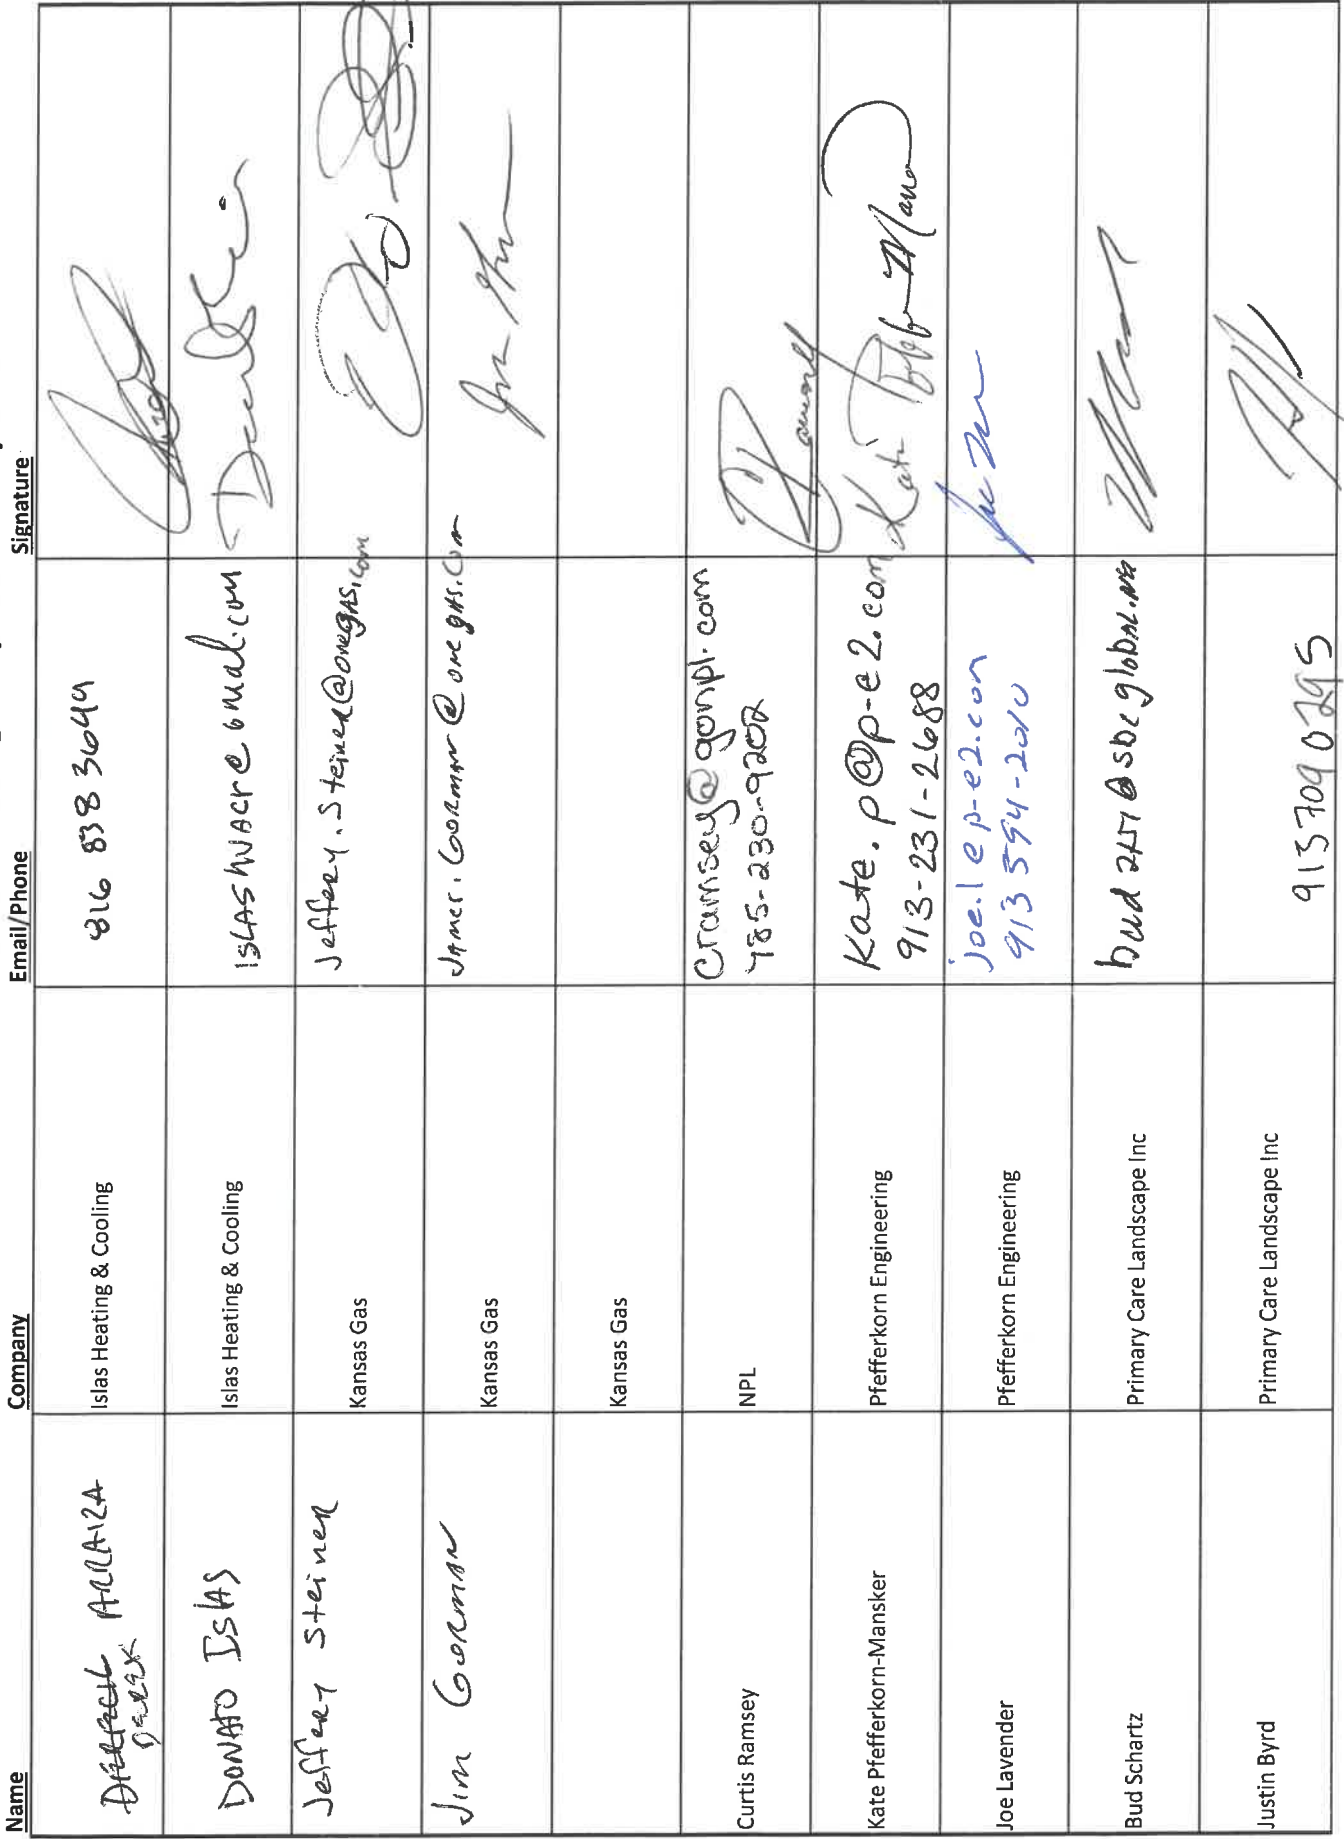 Name Company Email/Phone Signature
DEREK ARRAIZA Islas Heating & Cooling 816 838 3649
DONATO ISLAS Islas Heating & Cooling ISLASHVACR@GMAIL.COM
Jeffery Steiner Kansas Gas Jeffery.Steiner@onegas.com
Jim Gorman Kansas Gas James.Gorman@onegas.com
Kansas Gas
Curtis Ramsey NPL Cramsey@gonpl.com
785-230-9202
Kate Pfefferkorn-Mansker Pfefferkorn Engineering Kate.p@p-e2.com
913-231-2688
Joe Lavender Pfefferkorn Engineering joe.l@p-e2.com
913 594-2010
Bud Schartz Primary Care Landscape Inc
Justin Byrd Primary Care Landscape Inc 913 709 0295